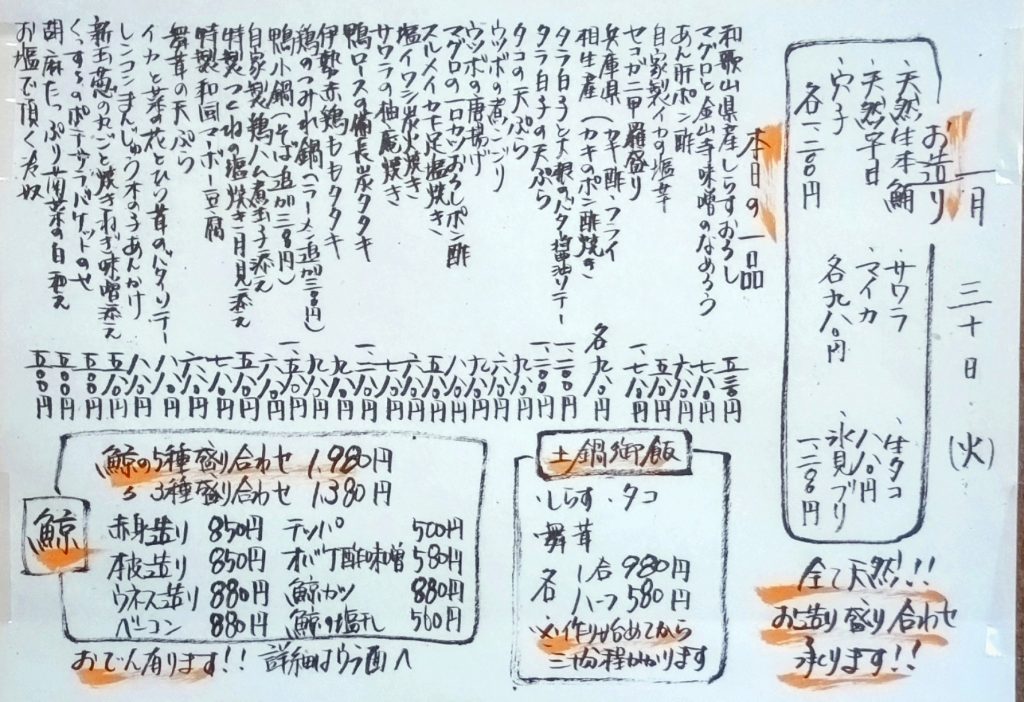 一月 三十日・(火)
お造り
・天然生本鮪
・天然平目
・穴子
各一、二八〇円
・サワラ
・マイカ
各九八〇円
・生タコ
八八〇円
・氷見ブリ
一、二八〇円
全て天然!!
お造り盛り合わせ
承ります!!
本日の一品
和歌山県産しらすおろし 五八〇円
マグロと金山寺味噌のなめろう 七八〇円
あん肝ポン酢 六八〇円
自家製イカの塩辛 五八〇円
セコガニ甲羅盛り 一、七八〇円
兵庫県
相生産(カキポン酢、フライ
(カキのポン酢焼き 各九八〇円
タラ白子と大根のバター醤油ソテー 一、二八〇円
タラ白子の天ぷら 一、二八〇円
タコの天ぷら 九八〇円
ウツボの煮こごり 六八〇円
ウツボの唐揚げ 九八〇円
マグロの一口カツおろしポン酢 八八〇円
スルメイカ下足塩焼き 五八〇円
塩イワシ炭火焼き 六八〇円
サワラの柚庵焼き
鴨ロースの備長炭タタキ
伊勢赤鶏ももタタキ 九八〇円
鶏のつみれ鍋(ラーメン追加三八〇円)
鴨小鍋(そば追加三八〇円)
自家製鶏ハム煮玉子添え 六八〇円
特製つくねの塩焼き月見添え 五八〇円
特製和同マーボー豆腐 七八〇円
舞茸の天ぷら 六八〇円
イカと菜の花とひら茸のバターソテー 八八〇円
レンコンまんじゅう木の子あんかけ 八八〇円
新玉葱の丸ごと焼きねぎ味噌添え 五八〇円
くんすモのポテサラバケットのせ 五八〇円
胡麻たっぷり菊菜の白和え 五八〇円
お塩で頂く冷奴 五八〇円
鯨
鯨の5種盛り合わせ 1,980円
〃 3種盛り合わせ 1,380円
赤身造り 850円
本皮造り 850円
ウネス造り 880円
ベーコン 880円
テッパ 500円
オバケ酢味噌 580円
鯨カツ 880円
鯨の塩干し 500円
おでん有ります!! 詳細はウラ面へ
土鍋御飯
・しらす・タコ
舞茸
各 1合 980円
ハーフ 580円
※作り始めてから
三十分程かかります